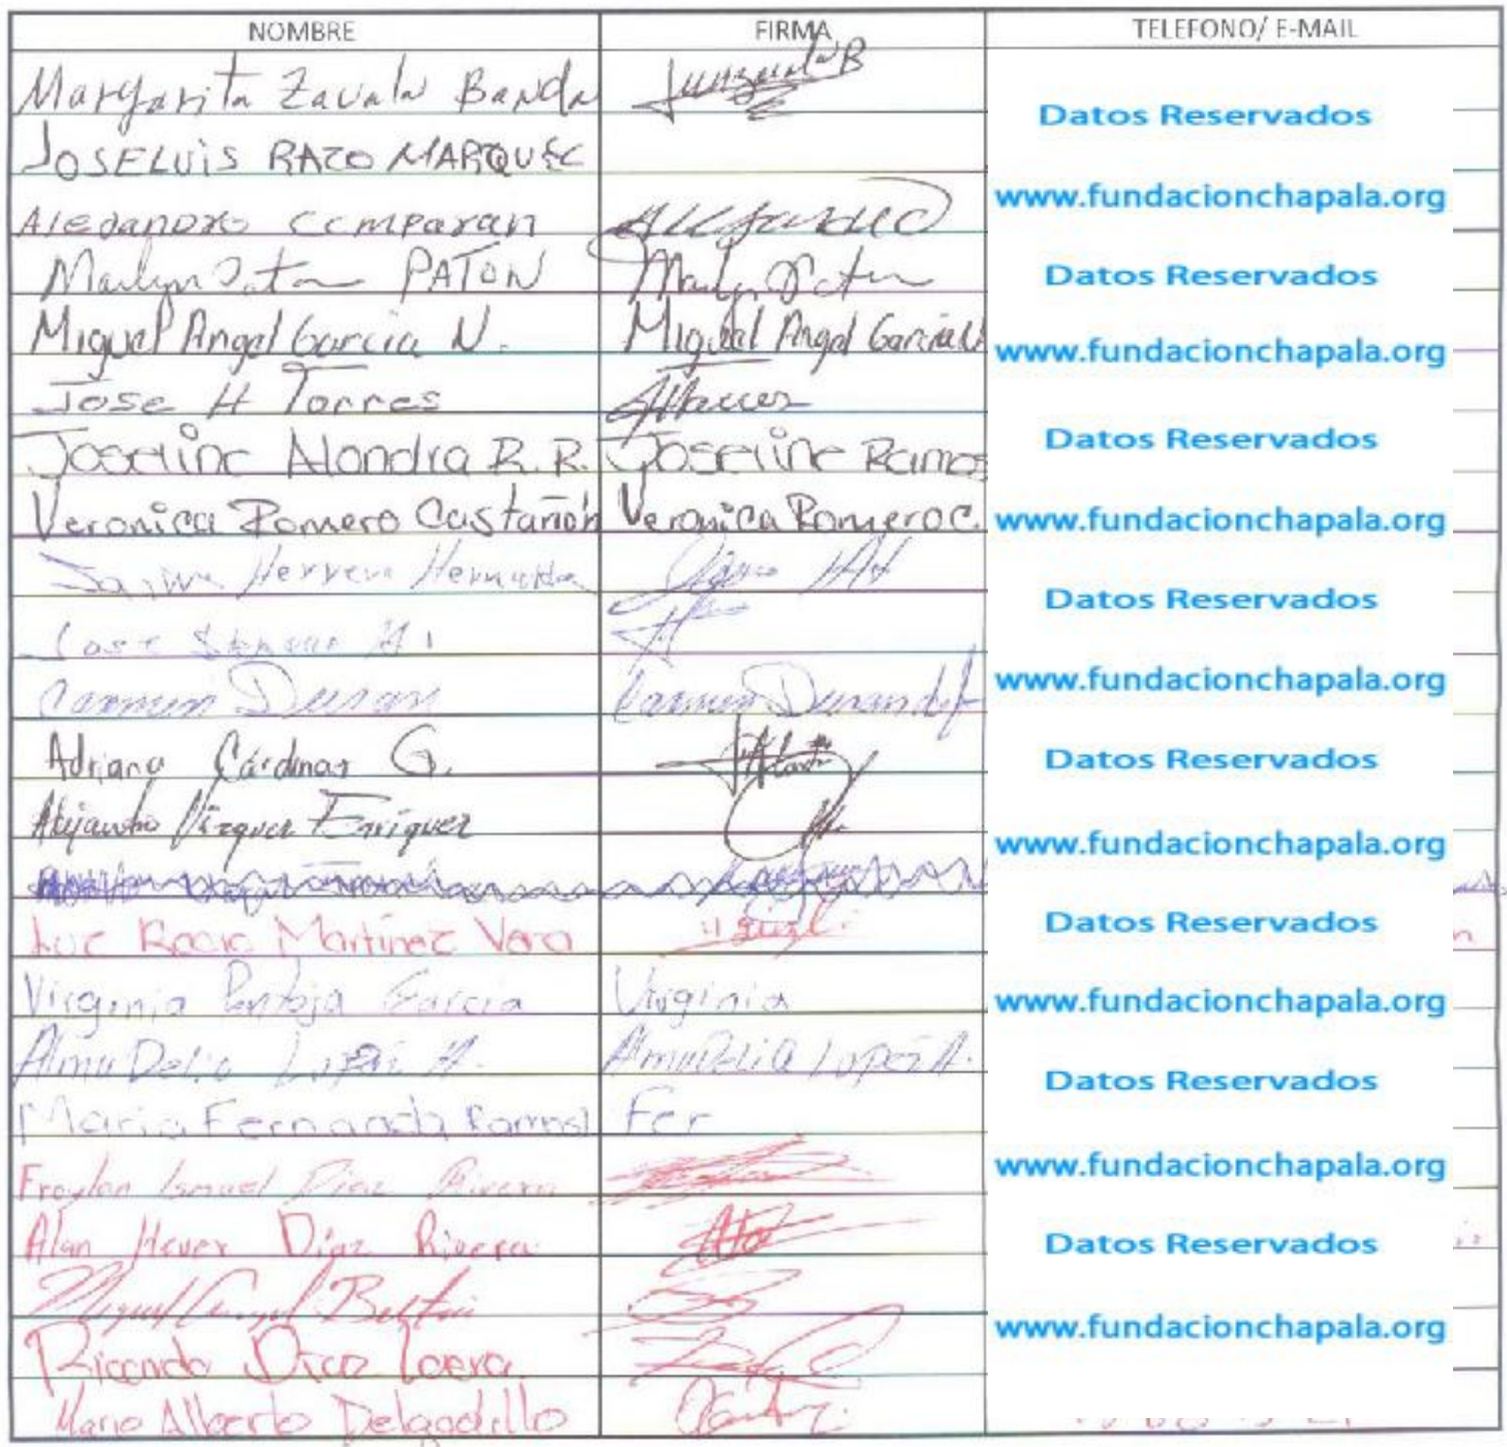 NOMBRE FIRMA TELEFONO/ E-MAIL
Margarita Zavala Banda
Datos Reservados
JOSELUIS RAZO MARQUEC
www.fundacionchapala.org
Alejandro Comparan
Marlyn Paton PATON Marlyn Paton
Datos Reservados
Miguel Angel Garcia N. Miguel Angel Garcia N
www.fundacionchapala.org
Jose H Torres
Joseline Alondra R.R. Joseline Ramos
Datos Reservados
Veronica Romero Castañon Veronica Romero C.
www.fundacionchapala.org
Herrera
Datos Reservados
Carmen Duran Carmen Duran
www.fundacionchapala.org
Adriana Cárdenas G.
Datos Reservados
Alejandro Enriquez
www.fundacionchapala.org
Luc Rocio Martinez Vera
Datos Reservados
Virginia Pantoja Garcia Virginia
www.fundacionchapala.org
Alma Delia Lopez A. Alma Delia Lopez A.
Datos Reservados
Maria Fernanda Ramos Fer
www.fundacionchapala.org
Froylan Ismael Diaz Rivera
Alan Hever Diaz Rivera
Datos Reservados
Miguel Angel Beltran
www.fundacionchapala.org
Ricardo Diaz Loera
Mario Alberto Delgadillo